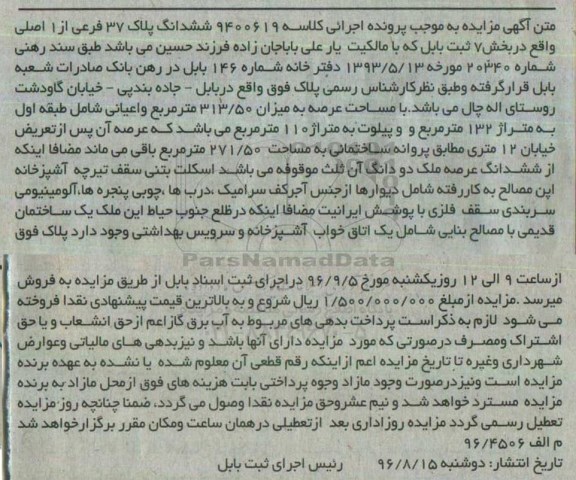 متن آگهی مزایده به موجب پرونده اجرائی کلاسه ۹۴۰۰۶۱۹ ششدانگ پلاک ۳۷ فرعی از ۱ اصلی
واقع دربخش۷ ثبت بابل که با مالکیت یار علی باباجان زاده فرزند حسین می باشد طبق سند رهنی
شماره ۲۰۳۴۰ مورخه ۱۳۹۳/۵/۱۳ دفتر خانه شماره ۱۴۶ بابل در رهن بانک صادرات شعبه
بابل قرارگرفته وطبق نظرکارشناس رسمی پلاک فوق واقع دربابل - جاده بندپی - خیابان گاودشت
روستای اله چال می باشد.با مساحت عرصه به میزان ۳۱۳/۵۰ مترمربع واعیانی شامل طبقه اول
به متراژ ۱۳۲ مترمربع و و پیلوت به متراژ ۱۱۰ مترمربع می باشد که عرصه آن پس ازتعریض
خیابان ۱۲ متری مطابق پروانه ساختمانی به مساحت ۲۷۱/۵۰ مترمربع باقی می ماند مضافا اینکه
از ششدانگ عرصه ملک دو دانگ آن ثلث موقوفه می باشد اسکلت بتنی سقف تیرچه آشپزخانه
اپن مصالح به کاررفته شامل دیوارها ازجنس آجرکف سرامیک ،درب ها ،چوبی پنجره ها،آلومینیومی
سربندی سقف فلزی با پوشش ایرانیت مضافا اینکه درظلع جنوب حیاط این ملک یک ساختمان
قدیمی با مصالح بنایی شامل یک اتاق خواب آشپزخانه و سرویس بهداشتی وجود دارد پلاک فوق
ParsNamadData
ازساعت ۹ الی ۱۲ روزیکشنبه مورخ ۹۶/۹/۵ دراجرای ثبت اسناد بابل از طریق مزایده به فروش
میرسد .مزایده ازمبلغ ۱/۵۰۰/۰۰۰/۰۰۰ ریال شروع و به بالاترین قیمت پیشنهادی نقدا فروخته
می شود لازم به ذکراست پرداخت بدهی های مربوط به آب برق گازاعم ازحق انشعاب و یا حق
اشتراک ومصرف درصورتی که مورد مزایده دارای آنها باشد و نیزبدهی های مالیاتی وعوارض
شهرداری وغیره تا تاریخ مزایده اعم ازاینکه رقم قطعی آن معلوم شده یا نشده به عهده برنده
مزایده است ونیزدرصورت وجود مازاد وجوه پرداختی بابت هزینه های فوق ازمحل مازاد به برنده
مزایده مسترد خواهد شد و نیم عشروحق مزایده نقدا وصول می گردد، ضمنا چنانچه روز مزایده
تعطیل رسمی گردد مزایده روزاداری بعد ازتعطیلی درهمان ساعت ومکان مقرر برگزارخواهد شد
م الف ۹۶/۴۵۰۶
تاریخ انتشار: دوشنبه ۹۶/۸/۱۵ رئیس اجرای ثبت بابل